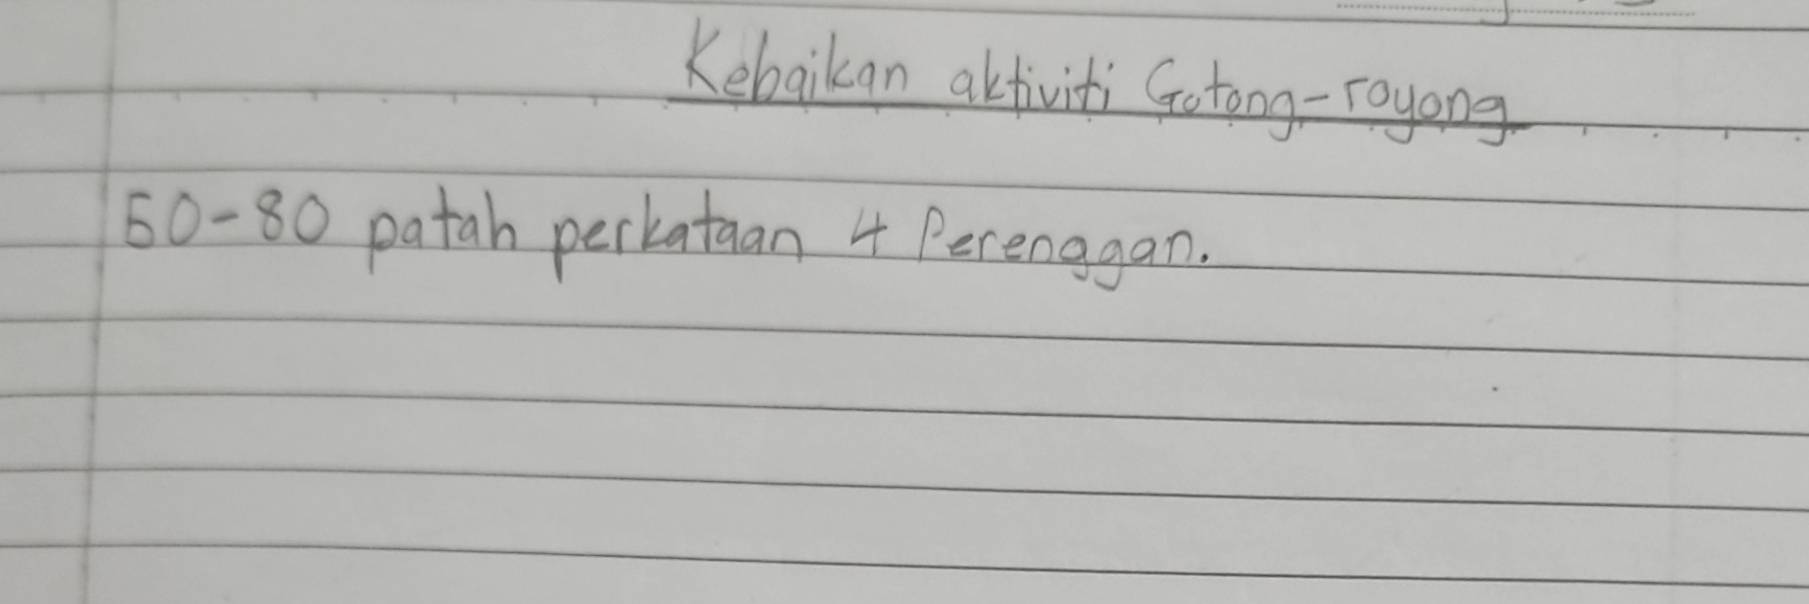 Kebaikan aktiviti Gotong-royong
50-80 patah perkataan 4 Perenggan.